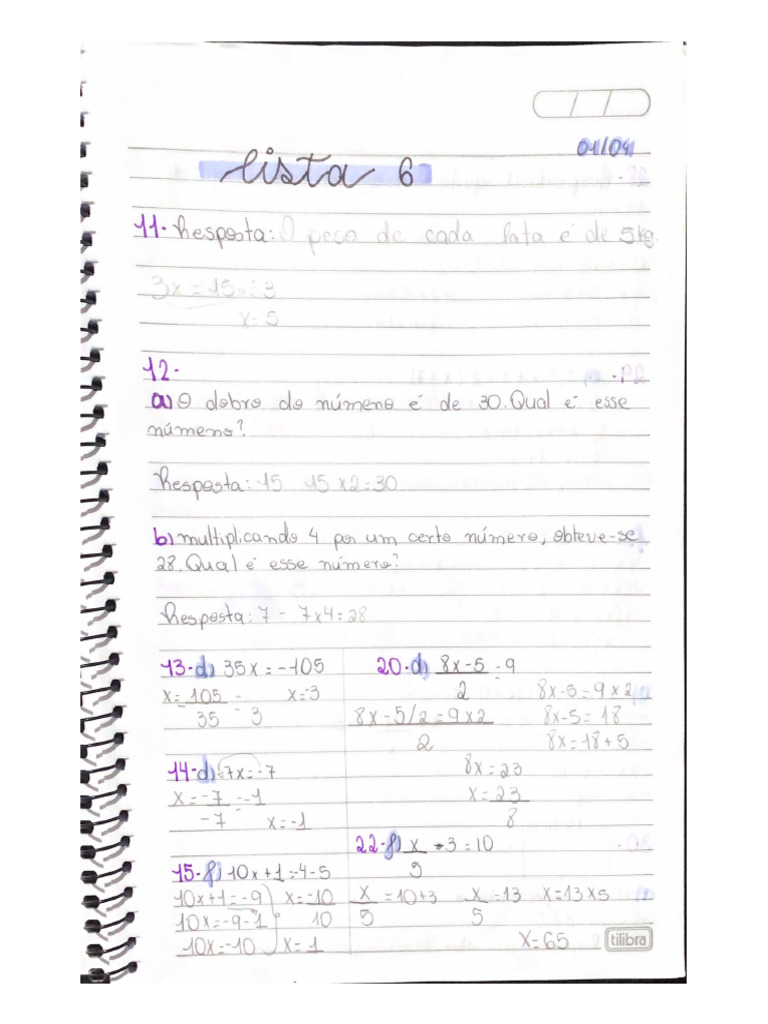 01/04
Lista 6
11- Resposta: O peso de cada lata é de 5kg.
3x = 15 ÷ 3
x = 5
12-
a) O dobro do número é de 30. Qual é esse
número?
Resposta: 15 15 x 2 = 30
b) multiplicando 4 por um certo número, obteve-se
28. Qual é esse número?
Resposta: 7 - 7x4 = 28
13-d) 35x = -105
x = -105 = x = 3
35 3
14-d) -7x = -7
x = -7 = -1
-7 x = -1
15-f) 10x + 1 = -4 - 5
10x + 1 = -9 x = -10
10x = -9 - 1 10
10x = -10 x = 1
20-d) 8x - 5 = 9
2 8x - 5 = 9 x 2
8x - 5/2 = 9 x 2 8x - 5 = 18
2 8x = 18 + 5
8x = 23
x = 23
8
22-f) x - 3 = 10
5
x = 10 + 3 x = 13 x = 13 x 5
5 5
x = 65
tilibra